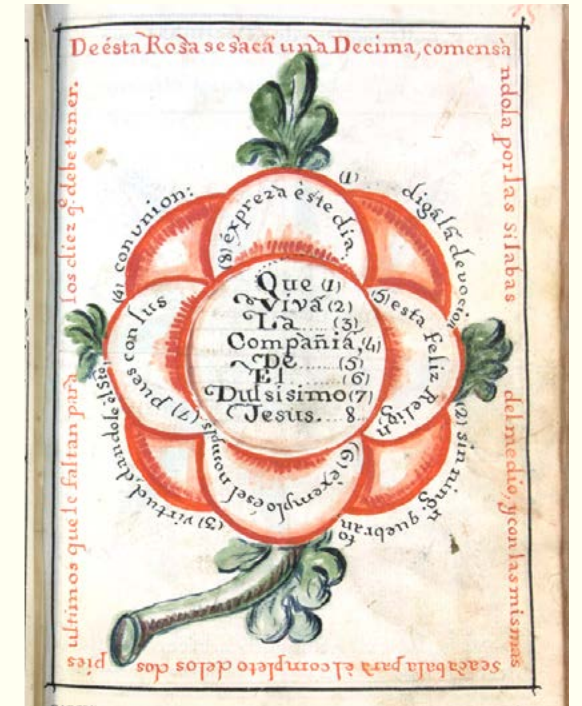 De ésta Rosa se saca una Decima, comensa
ndola por las Silabas
del medio, y con las mismas
se acabala para èl completo de los dos
pies
ultimos que le faltan para
los diez q.̃ debe tener.
(1) .... digala devocion
(2) sin ning.n quebran
to
(3) virtud, dandole
(4) conunion:
(5) esta feliz Relig.n
(6) éxemplo és el
(7) pues con sus
(8) éxpreza èste dia.
Que (1)
Viva (2)
La ...... (3)
Compañiá, (4)
De ...... (5)
El ...... (6)
Dulsisimo (7)
Jesus. ... 8